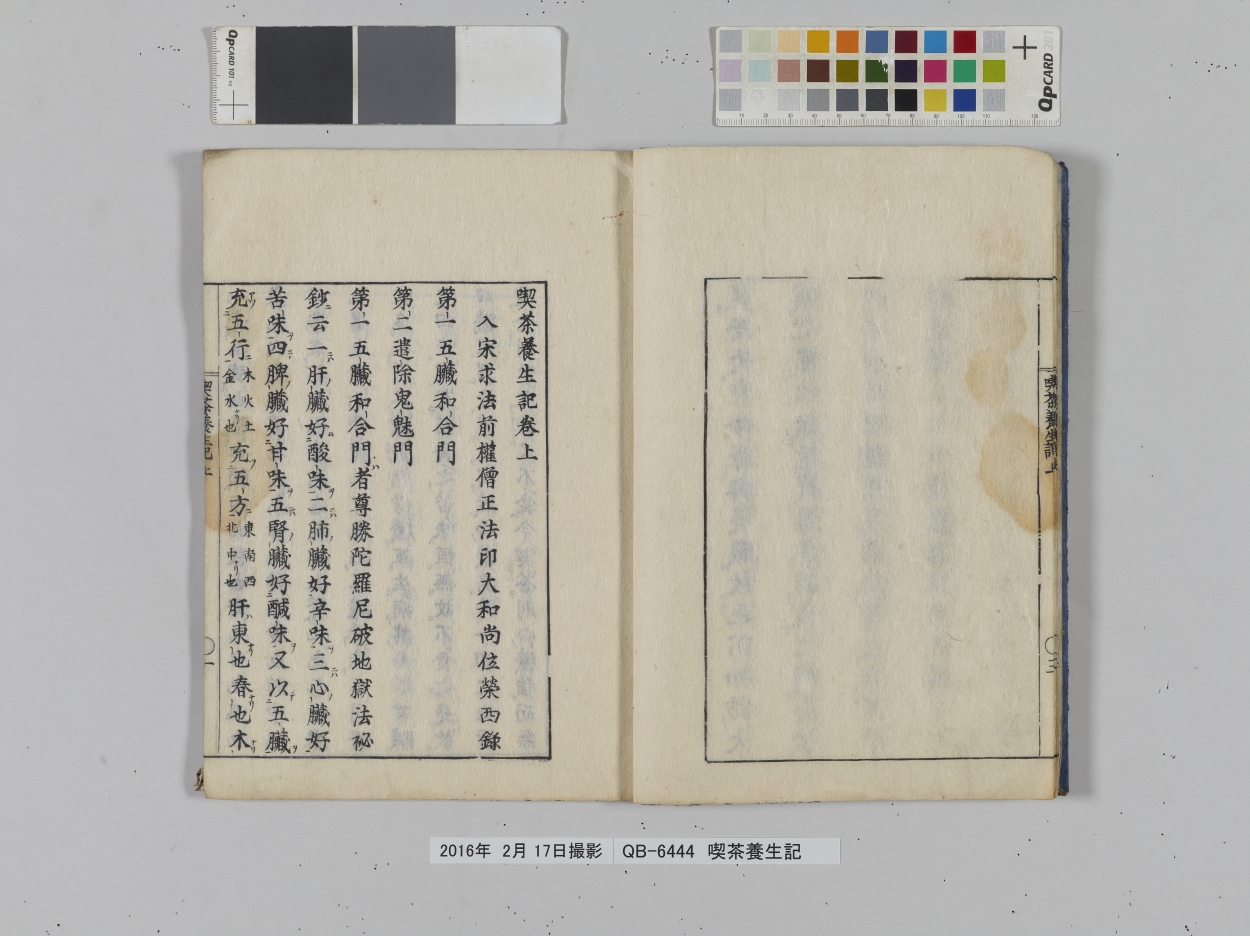 喫茶養生記卷上
入宋求法前權僧正法印大和尚位榮西錄
第一五臟和合門
第二遣除鬼魅門
第一五臟和合門者尊勝陀羅尼破地獄法秘
鈔云一肝臟好酸味二肺臟好辛味三心臟好
苦味四脾臟好甘味五腎臟好醎味又以五臟
充五行木火土金水也充五方東南西北中也肝東也春也木
喫茶養生記上
一
喫茶養生記上
三
QPCARD 101
QPCARD 201
2016年 2月17日撮影 QB-6444 喫茶養生記